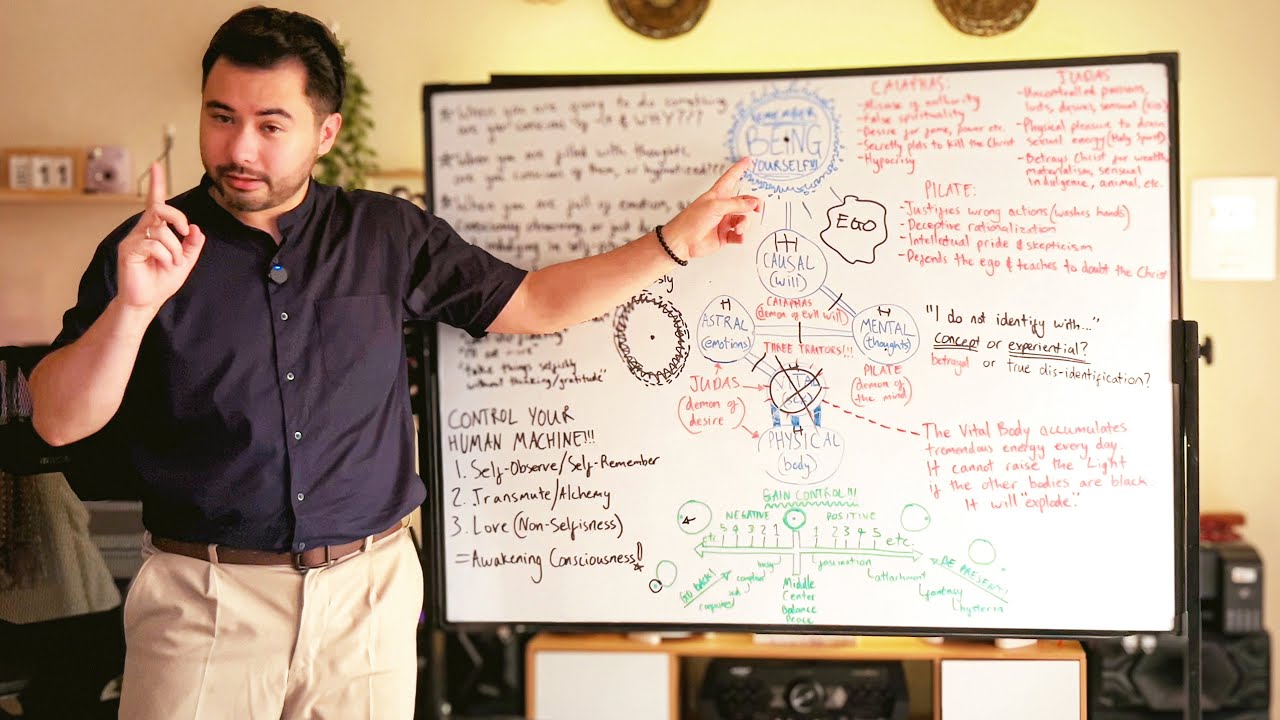 * When you are going to do something
are you conscious of it & WHY???
* When you are filled with thoughts,
are you conscious of them, or hypnotized???
* When you are full of emotion, a
"take things selfishly
without thinking/gratitude"
CONTROL YOUR
HUMAN MACHINE!!!
1. Self-Observe/Self-Remember
2. Transmute/Alchemy
3. Love (Non-Selfisness)
= Awakening Consciousness!
REMEMBER
BEING
YOURSELF!!!
EGO
CAUSAL
(will)
CAIAPHAS
(demon of Evil will)
ASTRAL
(emotions)
MENTAL
(thoughts)
THREE TRAITORS!!!
JUDAS
(demon of
desire)
PILATE
(demon of
the mind)
PHYSICAL
(body)
CAIAPHAS:
- Misuse of authority
- False spirituality
- Desire for fame, power etc.
- Secretly plots to kill the Christ
- Hypocrisy
JUDAS
- Uncontrolled passions,
lusts, desires, sensual (ego)
- Physical pleasure to drain
sexual energy (Holy Spirit)
- Betrays Christ for wealth,
materialism, sensual
indulgence, animal, etc.
PILATE:
- Justifies wrong actions (washes hands)
- Deceptive rationalization
- Intellectual pride & skepticism
- Defends the ego & teaches to doubt the Christ
"I do not identify with..."
concept or experiential?
betrayal or true dis-identification?
The Vital Body accumulates
tremendous energy every day.
It cannot raise the Light
if the other bodies are black.
It will "explode".
GAIN CONTROL!!!
NEGATIVE POSITIVE
etc. 5 4 3 2 1 1 2 3 4 5 etc.
GO BACK!
Middle
Center
Balance
Peace
fascination
attachment
fantasy
hysteria
BE PRESENT!!
11